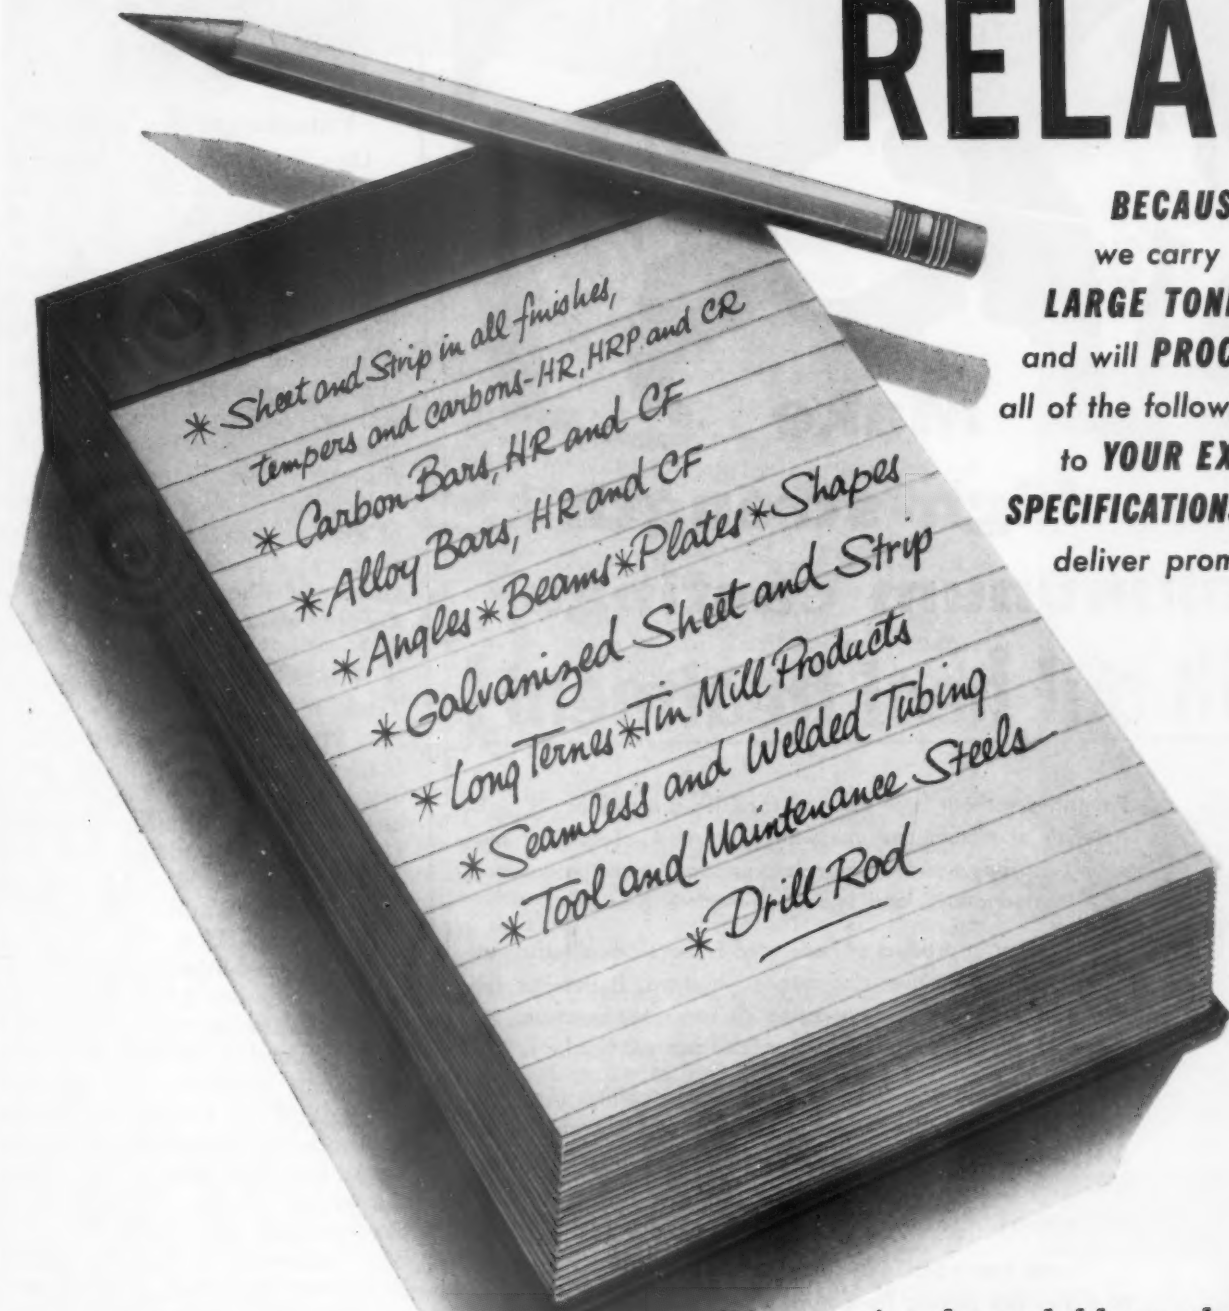 RELA
BECAUS
we carry
LARGE TON
and will PROC
all of the follow
to YOUR EX
SPECIFICATION
deliver pron
* Sheet and Strip in all finishes,
tempers and carbons-HR, HRP and CR
* Carbon Bars, HR and CF
* Alloy Bars, HR and CF
* Angles * Beams * Plates * Shapes
* Galvanized Sheet and Strip
* Long Ternes * Tin Mill Products
* Seamless and Welded Tubing
* Tool and Maintenance Steels
* Drill Rod